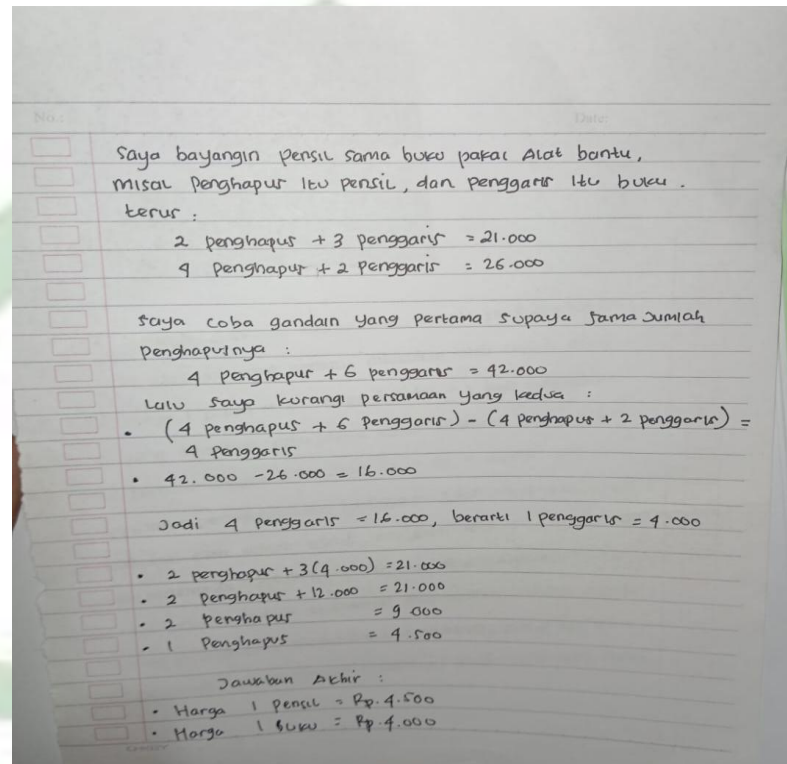 No.:
Date:
Saya bayangin pensil sama buku pakai Alat bantu,
misal Penghapus itu pensil, dan penggaris itu buku.
terus :
2 penghapus + 3 penggaris = 21.000
4 Penghapus + 2 Penggaris = 26.000
saya coba gandain yang pertama supaya sama Jumlah
Penghapusnya :
4 penghapus + 6 penggaris = 42.000
Lalu saya kurangi persamaan yang kedua :
• (4 penghapus + 6 Penggaris) - (4 penghapus + 2 penggaris) =
4 Penggaris
• 42.000 - 26.000 = 16.000
Jadi 4 penggaris = 16.000, berarti 1 penggaris = 4.000
• 2 penghapus + 3(4.000) = 21.000
• 2 penghapus + 12.000 = 21.000
• 2 penghapus = 9 000
• 1 Penghapus = 4.500
Jawaban Akhir :
• Harga 1 Pensil = Rp. 4.500
• Harga 1 Buku = Rp. 4.000